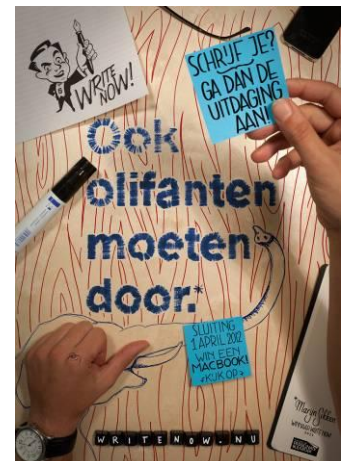 WRITE
NOW!
SCHRIJF JE?
GA DAN DE
UITDAGING
AAN!
Ook
olifanten
moeten
door.*
SLUITING
1 APRIL 2012
WIN EEN
MACBOOK!
KIJK OP
WRITENOW.NU